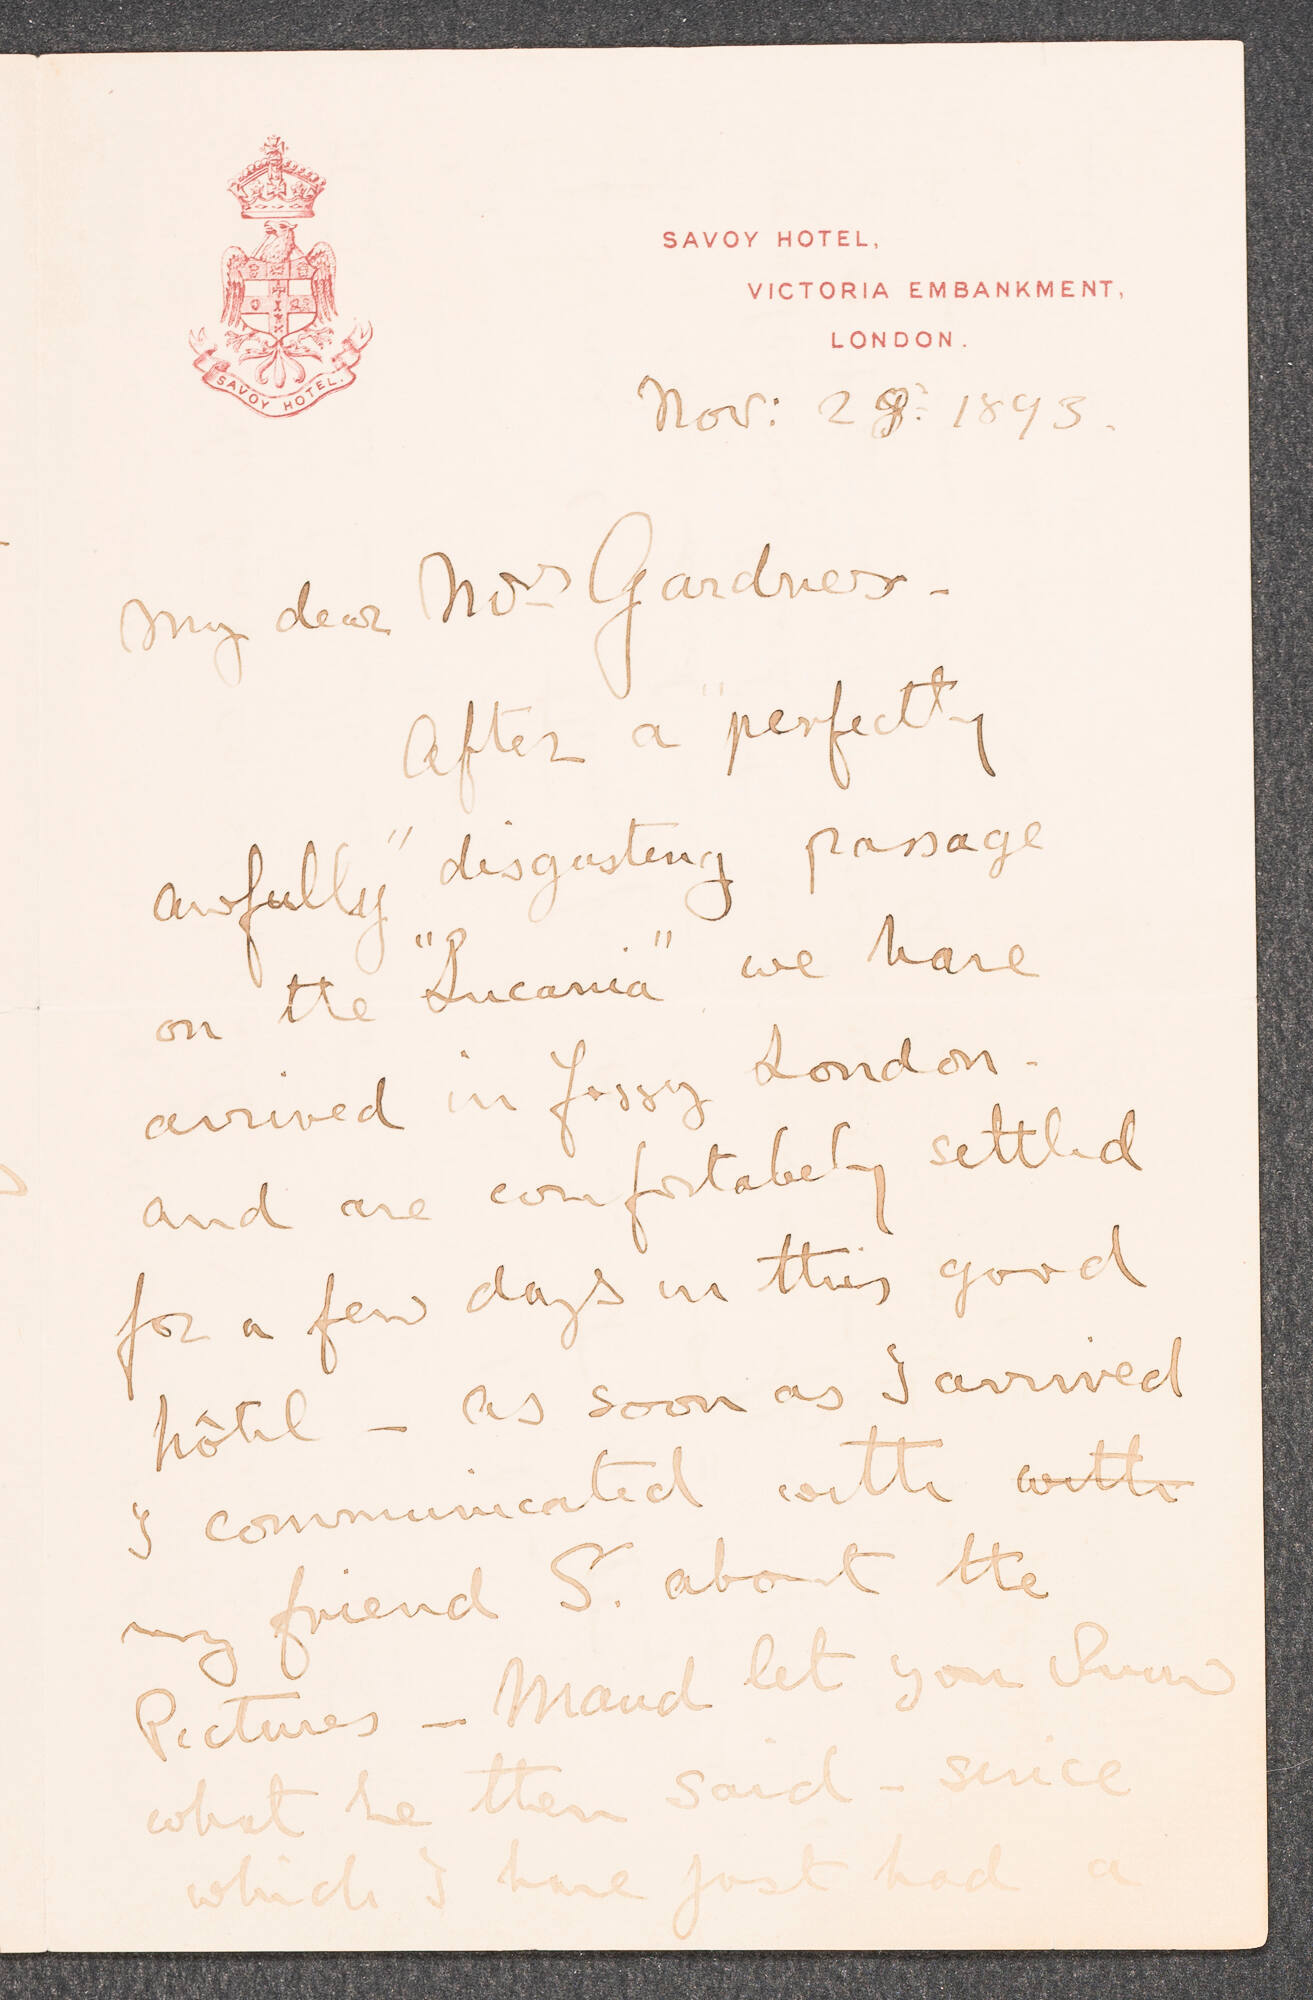 SAVOY HOTEL.
SAVOY HOTEL,
VICTORIA EMBANKMENT,
LONDON.
Nov: 29: 1893.
My dear Mrs Gardner -
After a "perfectly
awfully" disgusting passage
on the "Lucania" we have
arrived in foggy London -
and are comfortabely settled
for a few days in this good
hôtel - as soon as I arrived
I communicated with with
my friend S. about the
Pictures - Maud let you know
what he then said - since
which I have just had a